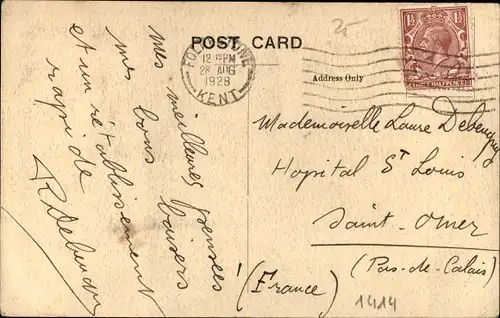 25
POST CARD
FOLKESTONE
12 15 PM
28 AUG
1928
KENT
1½ 1½
Address Only
Mes meilleures pensées
mes bons baisers
et un rétablissement
rapide
Mademoiselle Laure
Hopital St Louis
Saint-Omer
(Pas-de-Calais)
(France)
1414